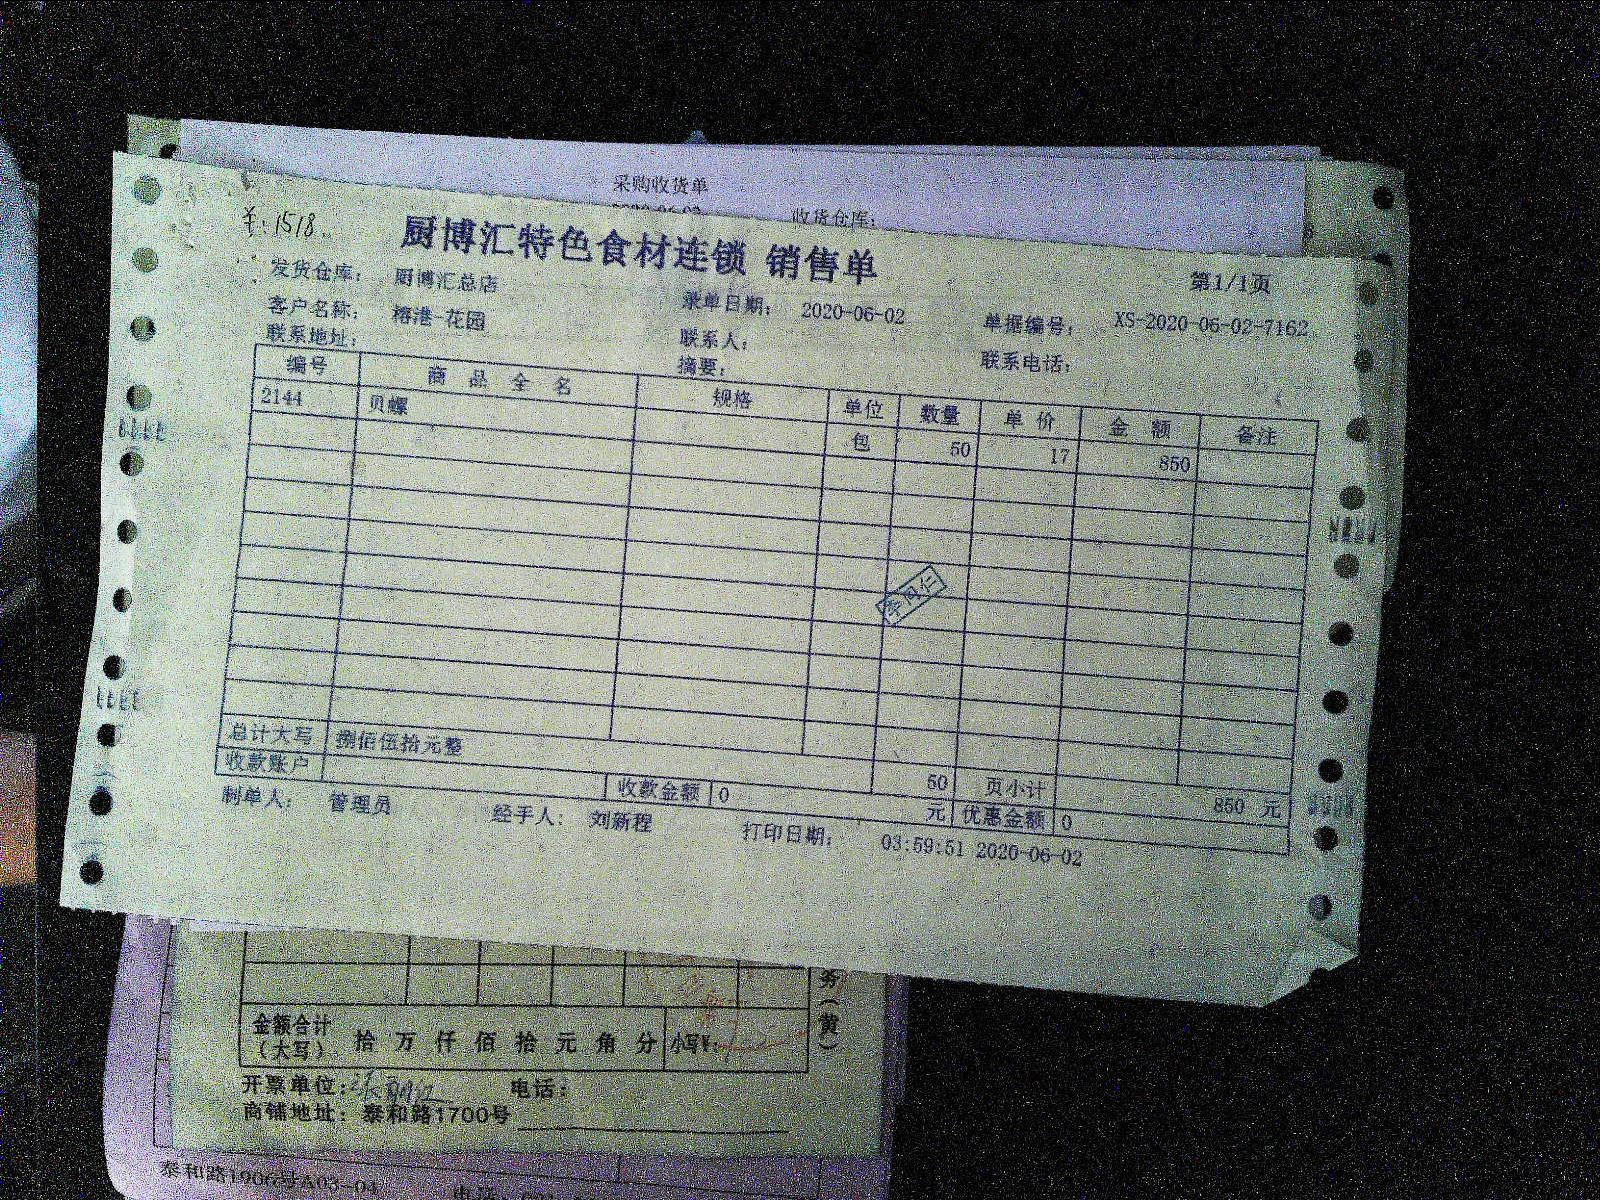 采购收货单
2020-06-02 收货仓库:
¥:1518.
厨博汇特色食材连锁 销售单
第1/1页
发货仓库: 厨博汇总店 录单日期: 2020-06-02 单据编号: XS-2020-06-02-7162
客户名称: 榕港-花园 联系人: 联系电话:
联系地址: 摘要:
编号 商品全名 规格 单位 数量 单价 金额 备注
2144 贝螺 包 50 17 850
李风仁
总计大写 捌佰伍拾元整 50 页小计 850 元
收款账户 收款金额 0 元 优惠金额 0
制单人: 管理员 经手人: 刘新程 打印日期: 03:59:51 2020-06-02
务(黄)
金额合计(大写) 拾 万 仟 佰 拾 元 角 分 小写¥:
开票单位: 电话:
商铺地址: 泰和路1700号
泰和路1906号A03-04 电话: 021